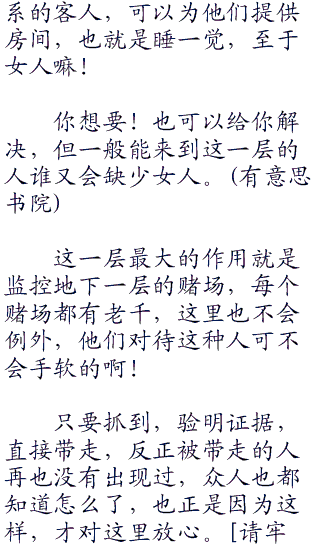 系的客人，可以为他们提供
房间，也就是睡一觉，至于
女人嘛！
你想要！也可以给你解
决，但一般能来到这一层的
人谁又会缺少女人。(有意思
书院)
这一层最大的作用就是
监控地下一层的赌场，每个
赌场都有老千，这里也不会
例外，他们对待这种人可不
会手软的啊！
只要抓到，验明证据，
直接带走，反正被带走的人
再也没有出现过，众人也都
知道怎么了，也正是因为这
样，才对这里放心。[请牢